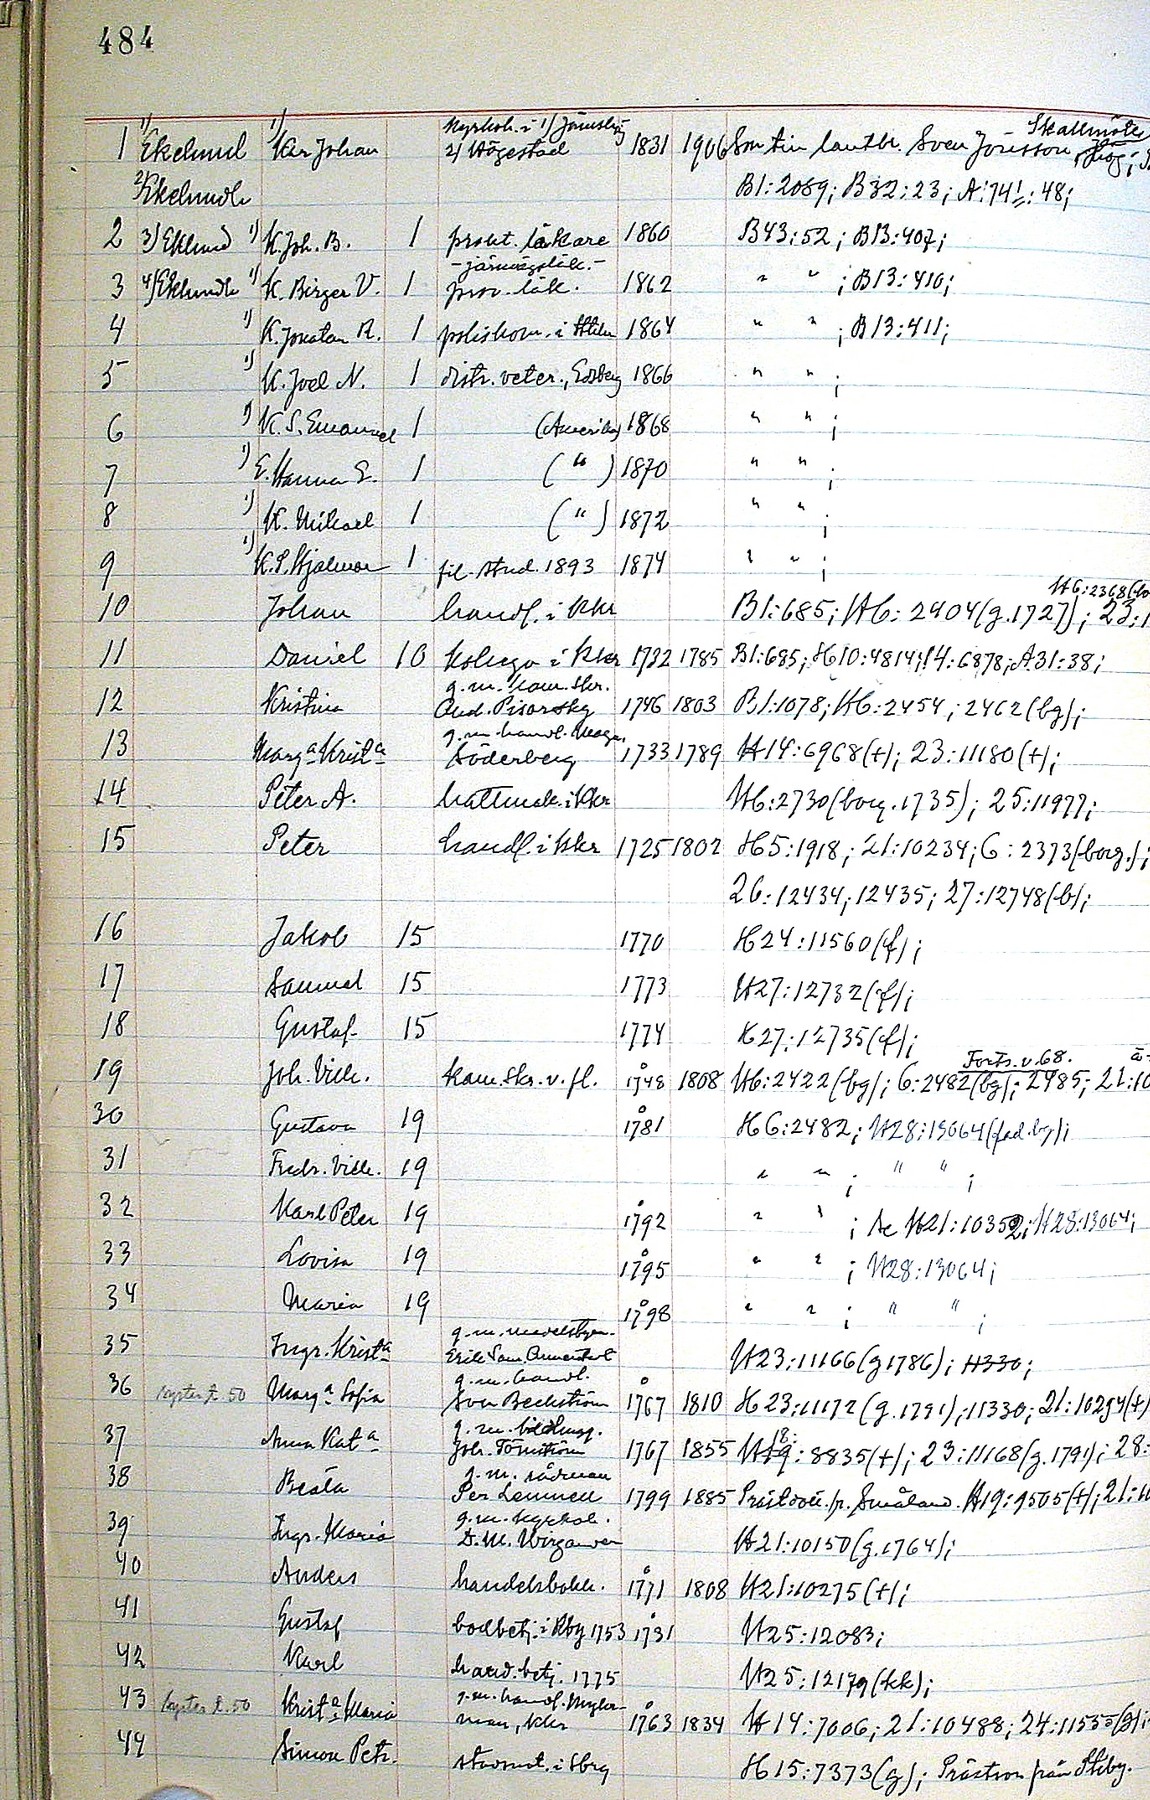 484
1 1) Ekelund 1) Kar Johan Kyrkoh. i 1) Jämshög 1831 1906 Son till lantbr. Sven Jönsson, Skallmöte
2) Ekelundh 2) Högestad B1:2089; B32:23; A:74:48;
2 3) Eklund 1) K. Joh. B. 1 prakt. läkare 1860 B43:52; B13:407;
3 4) Eklundh 1) K. Birger V. 1 -järnvägsläk.- prov. läk. 1862 " " ; B13:410;
4 1) K. Jonatan R. 1 poliskom. i Sthlm 1864 " " ; B13:411;
5 1) K. Joel N. 1 distr. veter., 1866 " " ;
6 1) K. S. Emanuel 1 (Amerika) 1868 " " ;
7 1) E. Hanna E. 1 ( " ) 1870 " " ;
8 1) K. Mikael 1 ( " ) 1872 " " ;
9 1) K. P. Hjalmar 1 fil. stud. 1893 1874 " " ;
10 Johan handl. i Kkr B1:685; H6:2404 (g.1727); H6:2368
11 Daniel 10 kollega i Kkr 1722 1785 B1:685; H10:4814; 14:6878; A31:38;
12 Kristina g.m. kam. skr. And. 1746 1803 B1:1078; H6:2454; 2462 (bg);
13 Marg:a Krist:a g.m. handl. Söderberg 1733 1789 H14:6968 (+); 23:11180 (+);
14 Peter A. hattmak. i Kkr H6:2730 (borg. 1735); 25:11977;
15 Peter handl. i Kkr 1725 1802 H5:1918; 21:10234; 6:2373 (borg.);
26:12434, 12435; 27:12748 (b);
16 Jakob 15 1770 H24:11560 (f);
17 Samuel 15 1773 H27:12732 (f);
18 Gustaf 15 1774 H27:12735 (f);
19 Joh. Vilh. kam. skr. v. fl. 1748 1808 H6:2422 (bg); 6:2482 (bg); 2485; Forts. v. 68.
30 Gustava 19 1781 H6:2482; H28:13064 (fad. bg);
31 Fredr. Vilh. 19 " " ; " " ;
32 Karl Peter 19 1792 " " ; H21:10352; H28:13064;
33 Lovisa 19 1795 " " ; H28:13064;
34 Maria 19 1798 " " ; " " ;
35 Ingr. Krist:a g.m. Erik Sam. H23:11166 (g 1786); 11330;
36 syster t. 50 Marg:a Sofia g.m. handl. Sven Beckström 1767 1810 H23:11172 (g. 1791); 11330; 21:10254 (+)
37 Anna Kat:a g.m. Joh. Törnström 1767 1855 H18:8835 (+); 23:11168 (g. 1791); 28:
38 Beata g.m. rådman Per Lemnell 1799 1885 Prästdott. fr. Småland. H19:9505 (+);
39 Ingr. Maria g.m. kyrkoh. D. M. H21:10150 (g. 1764);
40 Anders handelsbokh. 1771 1808 H21:10275 (+);
41 Gustaf bodbetj. i 1753 1731 H25:12083;
42 Karl hand. betj. 1775 H25:12179 (kk);
43 syster t. 50 Krist:a Maria g.m. handl. Kkr 1763 1834 H14:7006; 21:10488; 24:11535 (g);
44 Simon Petr. H15:7373 (g); Prästson från